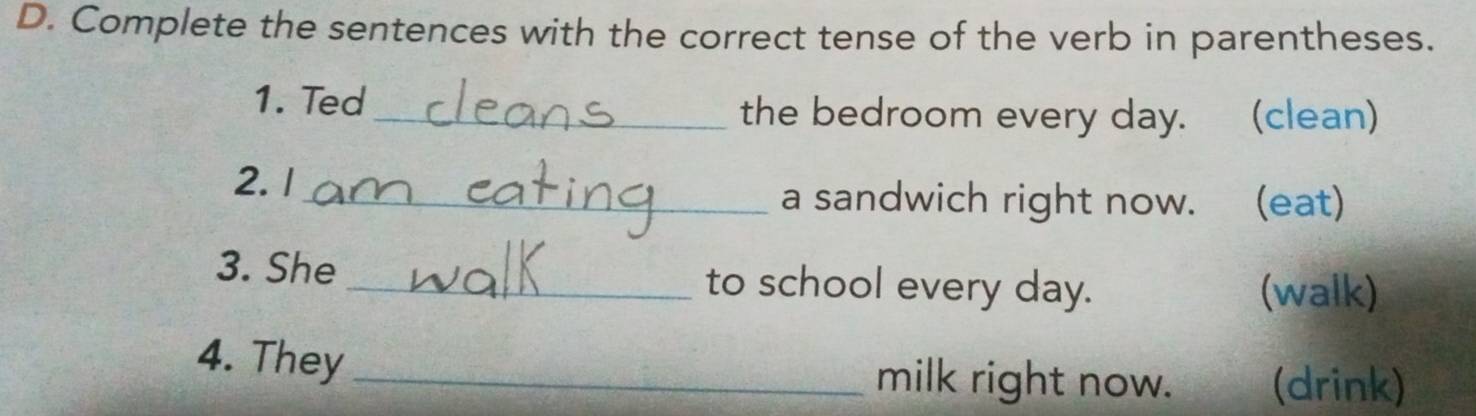 D. Complete the sentences with the correct tense of the verb in parentheses.
1. Ted cleans the bedroom every day. (clean)
2. I am eating a sandwich right now. (eat)
3. She walk to school every day. (walk)
4. They ____ milk right now. (drink)